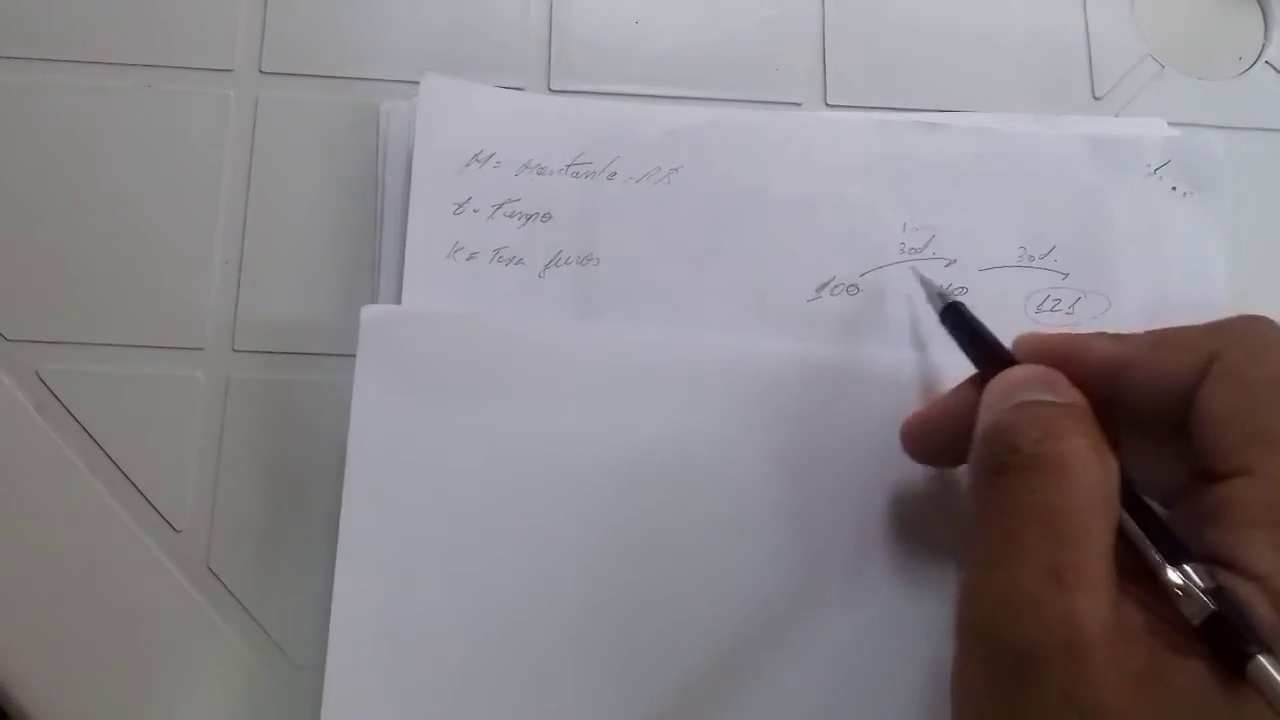 M = Montante - R$
t - Tempo
K = Taxa juros
30d. 30d.
100 121